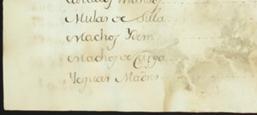 Mulas de Silla
Machos Ydem
Machos de Carga
Yeguas Madres